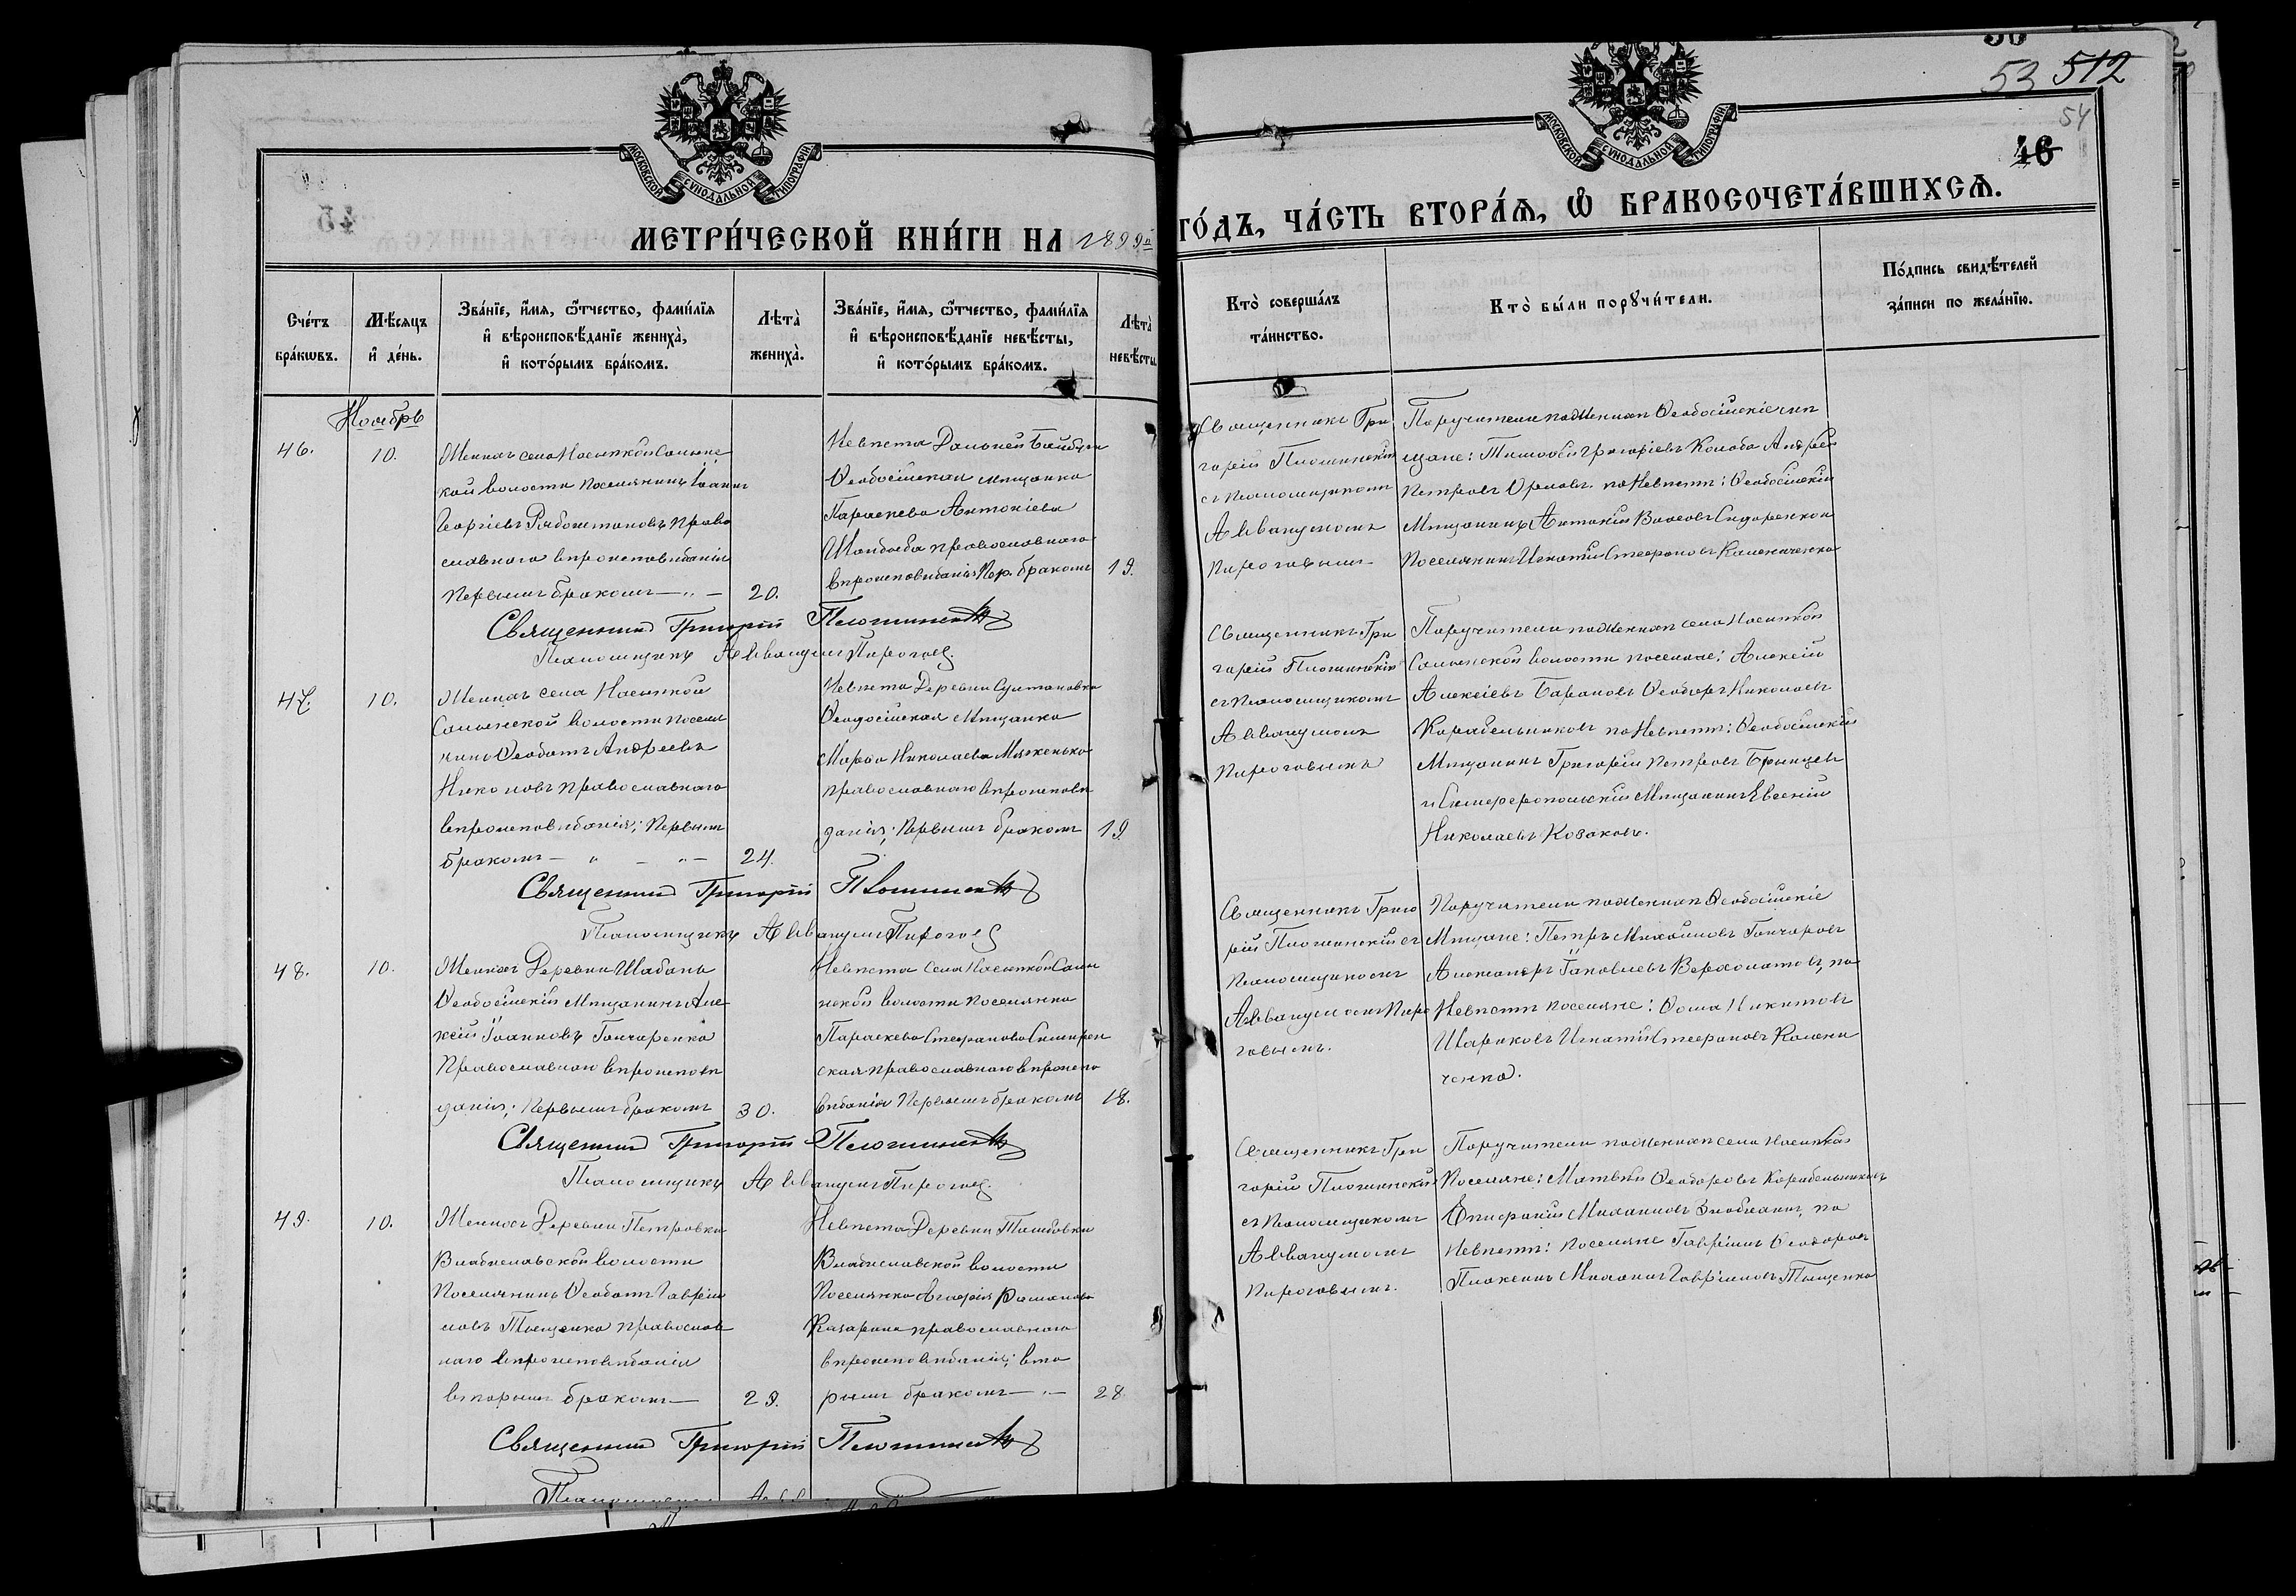 53 512
54
46
МОСКОВСКОЙ СѴНОДАЛЬНОЙ ТИПОГРАФІИ
МОСКОВСКОЙ СѴНОДАЛЬНОЙ ТИПОГРАФІИ
МЕТРИ́ЧЕСКОЙ КНИ́ГИ НА 1899й
ГО́ДЪ, ЧА́СТЬ ВТОРА́Ѧ, Ѽ БРАКОСОЧЕТА́ВШИХСѦ.
Сче́тъ бра́кѡвъ.
Мѣ́сяцъ и҆ де́нь.
Зва́нїе, и҆́мя, ѻ҆́тчество, фами́лїя и҆ вѣроисповѣ́данїе жениха̀, и҆ кото́рымъ бра́комъ.
Лѣта̀ жениха̀.
Зва́нїе, и҆́мя, ѻ҆́тчество, фами́лїя и҆ вѣроисповѣ́данїе невѣ́сты, и҆ кото́рымъ бра́комъ.
Лѣта̀ невѣ́сты
Кто̀ соверша́лъ та́инство.
Кто̀ бы́ли порꙋчи́тели.
По́дпись свидѣ́телей за́писи по жела́нїю.
Ноябрь
46.
10.
Женихъ села Насыпкой Салынс
кой волости поселянинъ Іоаннъ
Георгіевъ Рябоштановъ право
славнаго вѣроисповѣданія
первымъ бракомъ — „ —
20.
Невѣста Дальней Байбуги
Ѳеодосійская мѣщанка
Параскева Антоніева
православнаго
вѣроисповѣданія Пер. бракомъ
19.
Священникъ Гри
горій Плошинскій
съ псаломщикомъ
Аввакумомъ
Пироговымъ
Поручители по Женихѣ Ѳеодосійскіе мѣ
щане: Тимофей Григоріевъ Колоба Андрей
Петровъ Орловъ по Невѣстѣ: Ѳеодосійскій
Мѣщанинъ Антоній Власовъ Сидоренко и
Поселянинъ Игнатій Стефановъ Калениченко
Священникъ Григорій Плошинскій
Псаломщикъ Аввакумъ Пироговъ
47.
10.
Женихъ села Насыпкой
Салынской волости поселя
нинъ Ѳеодотъ Андреевъ
Никоновъ православнаго
вѣроисповѣданія; Первымъ
бракомъ — „ — „ —
24.
Невѣста Деревни Султановка
Ѳеодосійская Мѣщанка
Марфа Николаева Мяженькова
православнаго вѣроисповѣ
данія; Первымъ бракомъ
19
Священникъ Гри
горій Плошинскій
съ псаломщикомъ
Аввакумомъ
Пироговымъ
Поручители по Женихѣ села Насыпкой
Салынской волости поселяне: Алексій
Алексіевъ Барановъ Ѳеодоръ Николаевъ
Корабельниковъ по Невѣстѣ: Ѳеодосійскій
Мѣщанинъ Григорій Петровъ Брынцевъ
и Симферопольскій Мѣщанинъ Евсеній
Николаевъ Козаковъ.
Священникъ Григорій Плошинскій
Псаломщикъ Аввакумъ Пироговъ
48.
10.
Женихъ Деревни Шабань
Ѳеодосійскій Мѣщанинъ Але
ксій Іоанновъ Гончаренко
Православнаго вѣроисповѣ
данія; Первымъ бракомъ
30.
Невѣста Села Насыпкой Салы
нской волости поселянка
Параскева Стефанова Симферо
ская православнаго вѣроиспо
вѣданія Первымъ бракомъ
18.
Священникъ Григо
рій Плошинскій съ
Псаломщикомъ
Аввакумомъ Пиро
говымъ.
Поручители по Женихѣ Ѳеодосійскіе
Мѣщане: Петръ Михайловъ Гончаровъ
Александръ Іаковлевъ Верхоламовъ, по
Невѣстѣ поселяне: Ѳома Никитовъ
Шараковъ Игнатій Стефановъ Калени
ченко.
Священникъ Григорій Плошинскій
Псаломщикъ Аввакумъ Пироговъ.
49.
10.
Женихъ Деревни Петровки
Владиславской волости
Поселянинъ Ѳеодотъ Гавріи
ловъ Тыщенко православ
наго вѣроисповѣданія
вторымъ бракомъ —
29.
Невѣста Деревни Тамбовки
Владиславской волости
Поселянка Агафія Романова
Казарина православнаго
вѣроисповѣданія; вто
рымъ бракомъ — „ —
28
Священникъ Гри
горій Плошинскій
съ Псаломщикомъ
Аввакумомъ
Пироговымъ.
Поручители по Женихѣ села Насыпкой
Поселяне: Матвей Ѳеодоровъ Корабельниковъ
Епифаній Михаиловъ Знобихинъ, по
Невѣстѣ: поселяне Гавріилъ Ѳеодоровъ
Плаксинъ Михаилъ Гавріиловъ Тыщенко
Священникъ Григорій Плошинскій